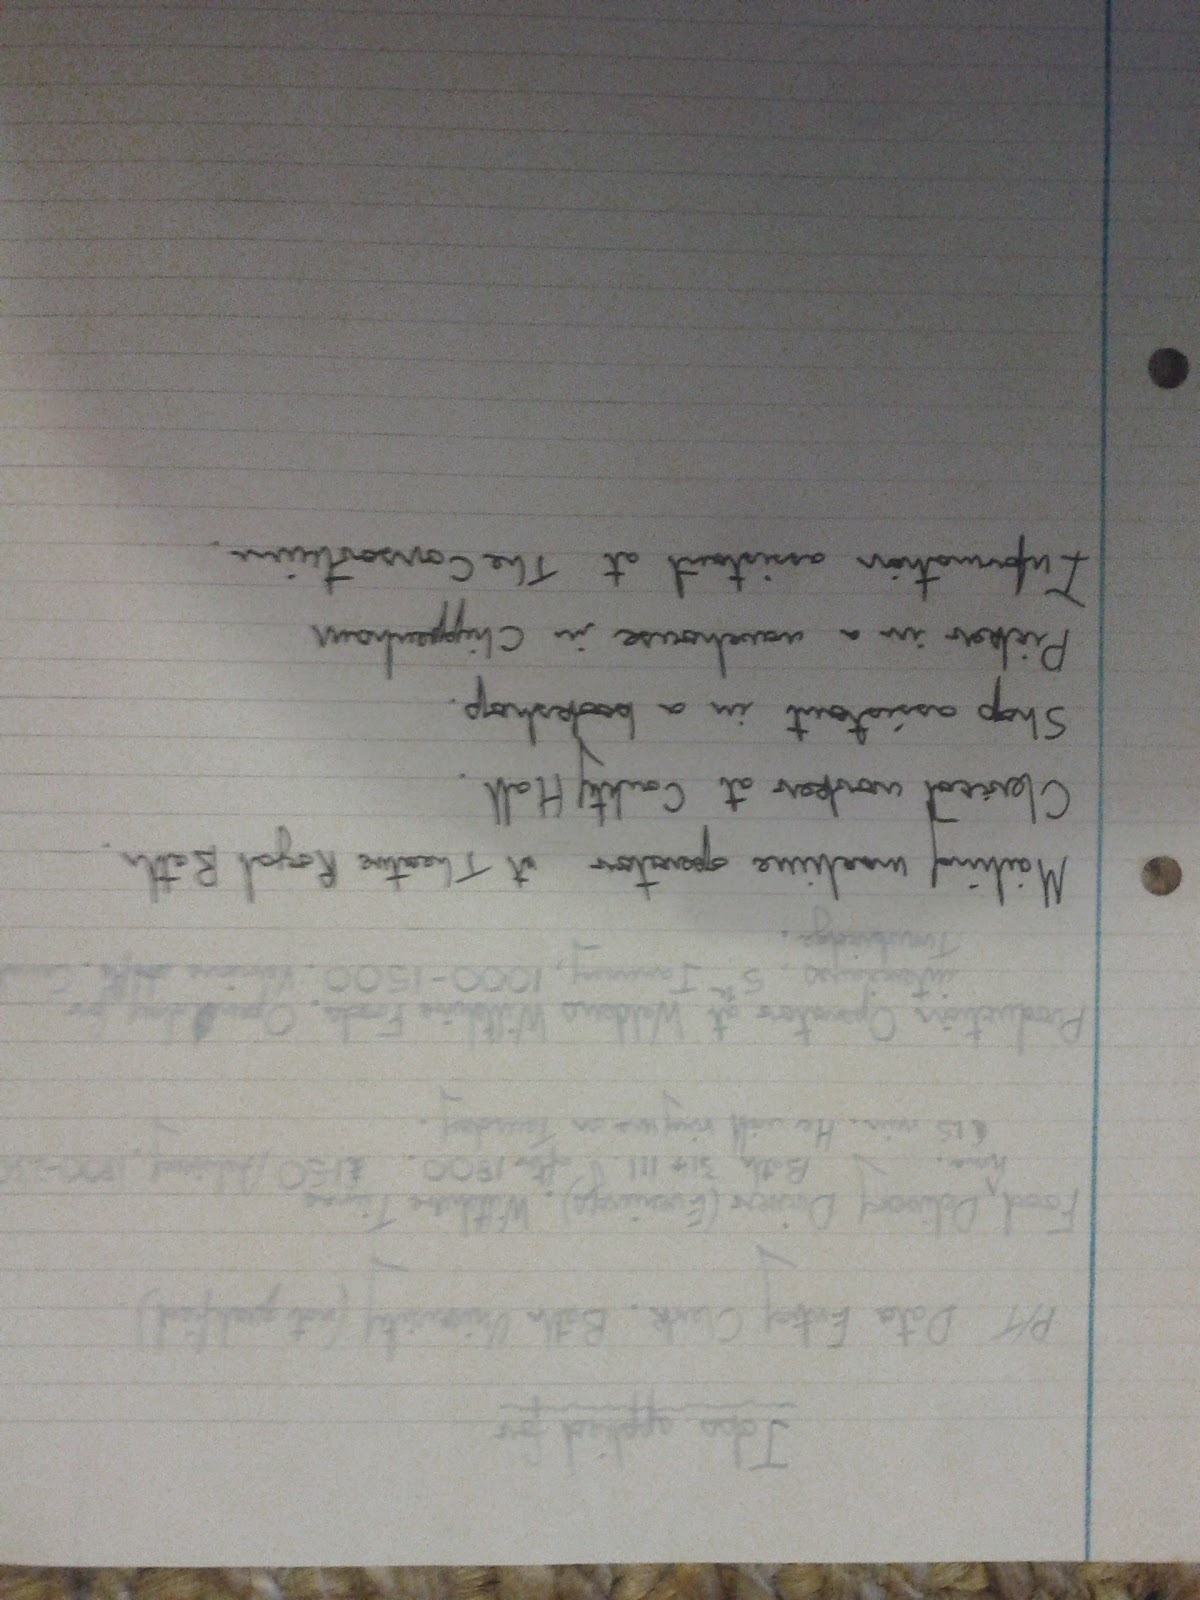 Jobs applied for
P/T Data Entry Clerk. Bath University (not qualified)
Food Delivery Driver (Evenings). Wiltshire Times
Bath 314 111. for 1800. £150 1800-
£15 min. He will ring me on Tuesday.
Production Operator at Weldens Wiltshire Foods. Open day for
interviews. 5th January, 1000-1500.
Trowbridge.
Mailing machine operator at Theatre Royal Bath.
Clerical worker at County Hall.
Shop assistant in a bookshop.
Picker in a warehouse in Chippenham
Information assistant at The Consortium.